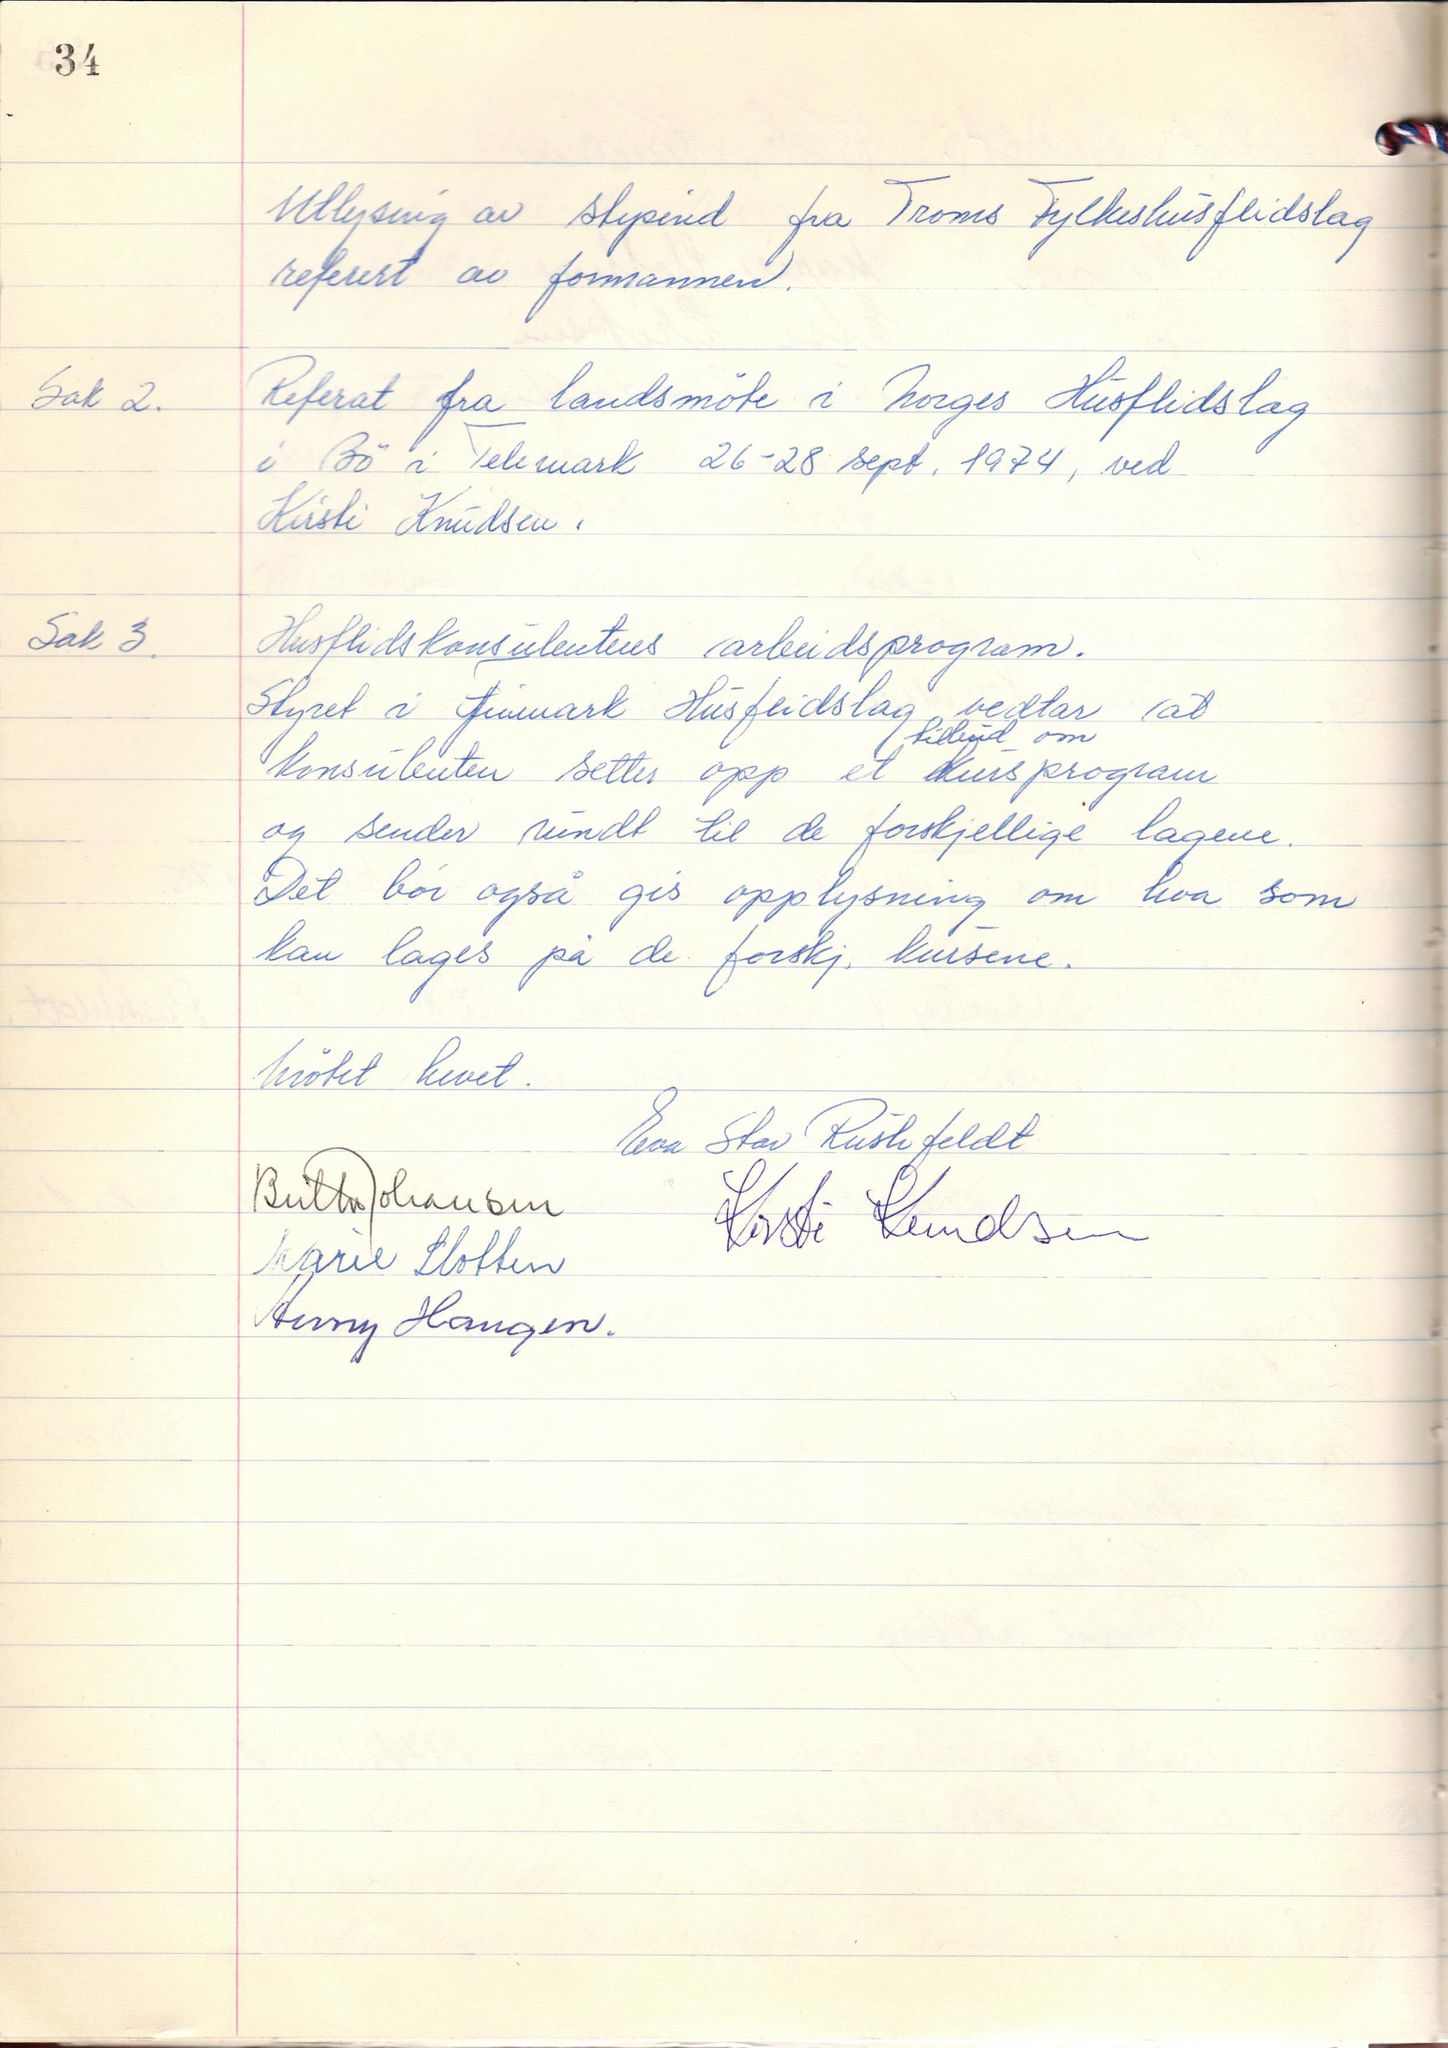 34
Utlysing av stipend fra Troms Fylkeshusflidslag
referert av formannen.
Sak 2. Referat fra landsmöte i Norges Husflidslag
i Bö i Telemark 26-28 sept. 1974, ved
Kirsti Knudsen.
Sak 3. Husflidskonsulentens arbeidsprogram.
Styret i Finnmark Husflidslag vedtar at
tilbud om
konsulenten setter opp et kursprogram
og sender rundt til de forskjellige lagene.
Det bör også gis opplysning om hva som
kan lages på de forskj. kursene.
Mötet hevet.
Eva Stav Rushfeldt
Britta Johansen
Kirsti Knudsen
Marie Slotten
Henny Haugen.